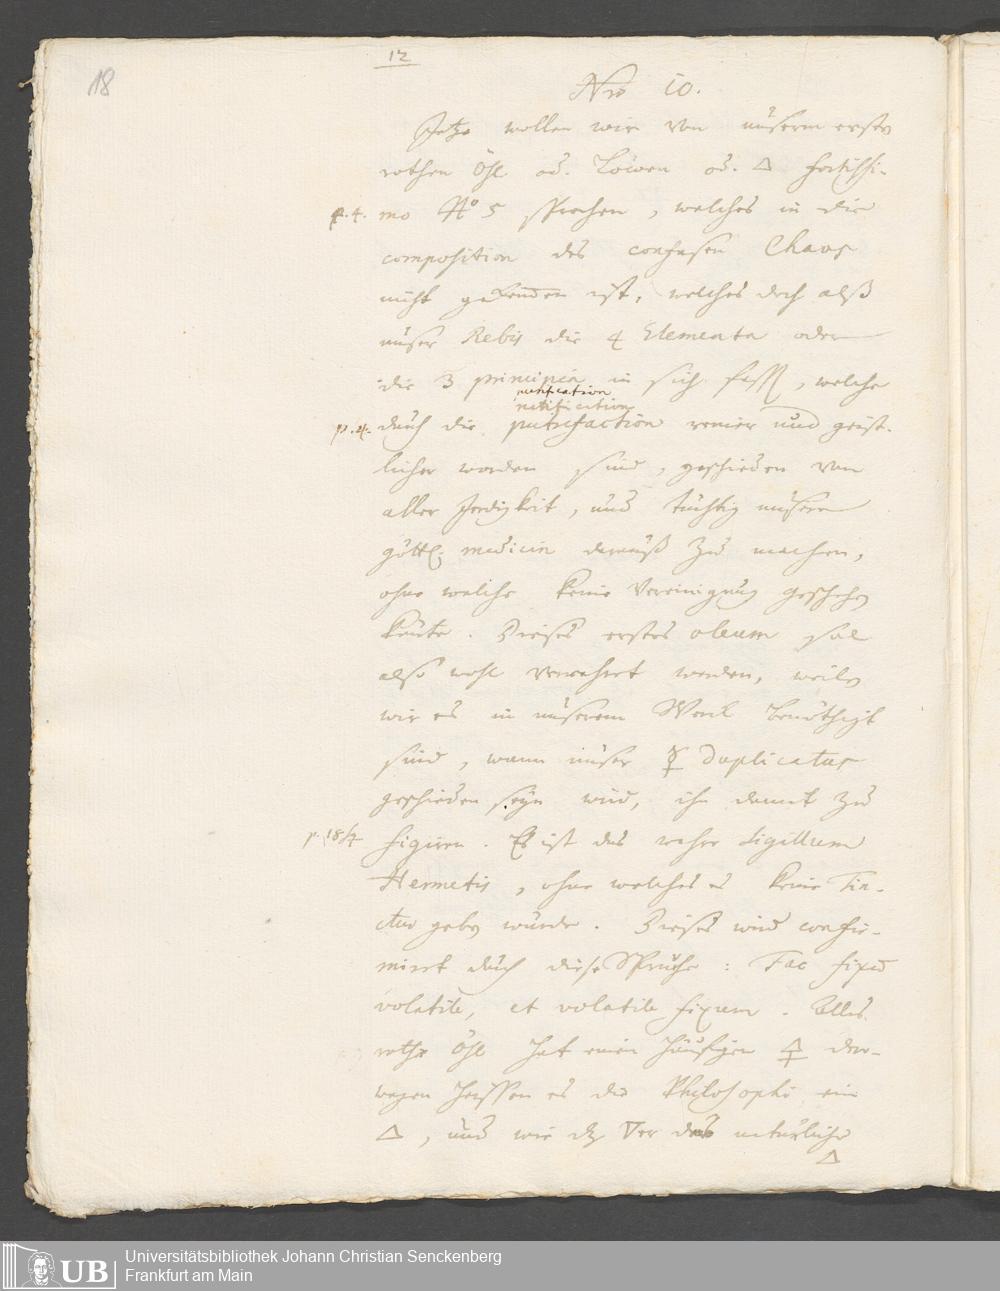 18
12
Nro 10.
Jetzo wollen wir von unserm ersten
rothen Öhl od. Löwen od. 🜂 fortissi-
p. 4. mo No 5 sprechen, welches in die
composition des confusen Chaos
nicht gekommen ist, welches doch alß
unser Rebis die 4 Elementa oder
die 3 principia in sich hatt, welche
purification
rectification
p. 4. durch die putrefaction reiner und geist-
licher worden sind, geschieden von
aller Irdigkeit, und tüchtig unsere
göttl. medicin darauß zu machen,
ohne welche keine Vereinigung geschehen
könte. Dieses erstes oleum sol
also wohl verwahret werden, weilen
wir es in unserem Werck benöthigt
sind, wann unser ☿ duplicatus
geschieden seyn wird, ihn damit zu
p. 18/4 figiren. Es ist das wahre Sigillum
Hermetis, ohne welches es keine Tin-
ctur geben würde. Dieses wird confir-
mirt durch diese Sprüche: Fac fixum
volatile, et volatile fixum. Alles
rothe Öhl hat einen häuffigen 🜍 der-
wegen heissen es die Philosophi ein
🜂, und wie dz 🜄er das natürliche
🜂
Universitätsbibliothek Johann Christian Senckenberg
Frankfurt am Main
UB